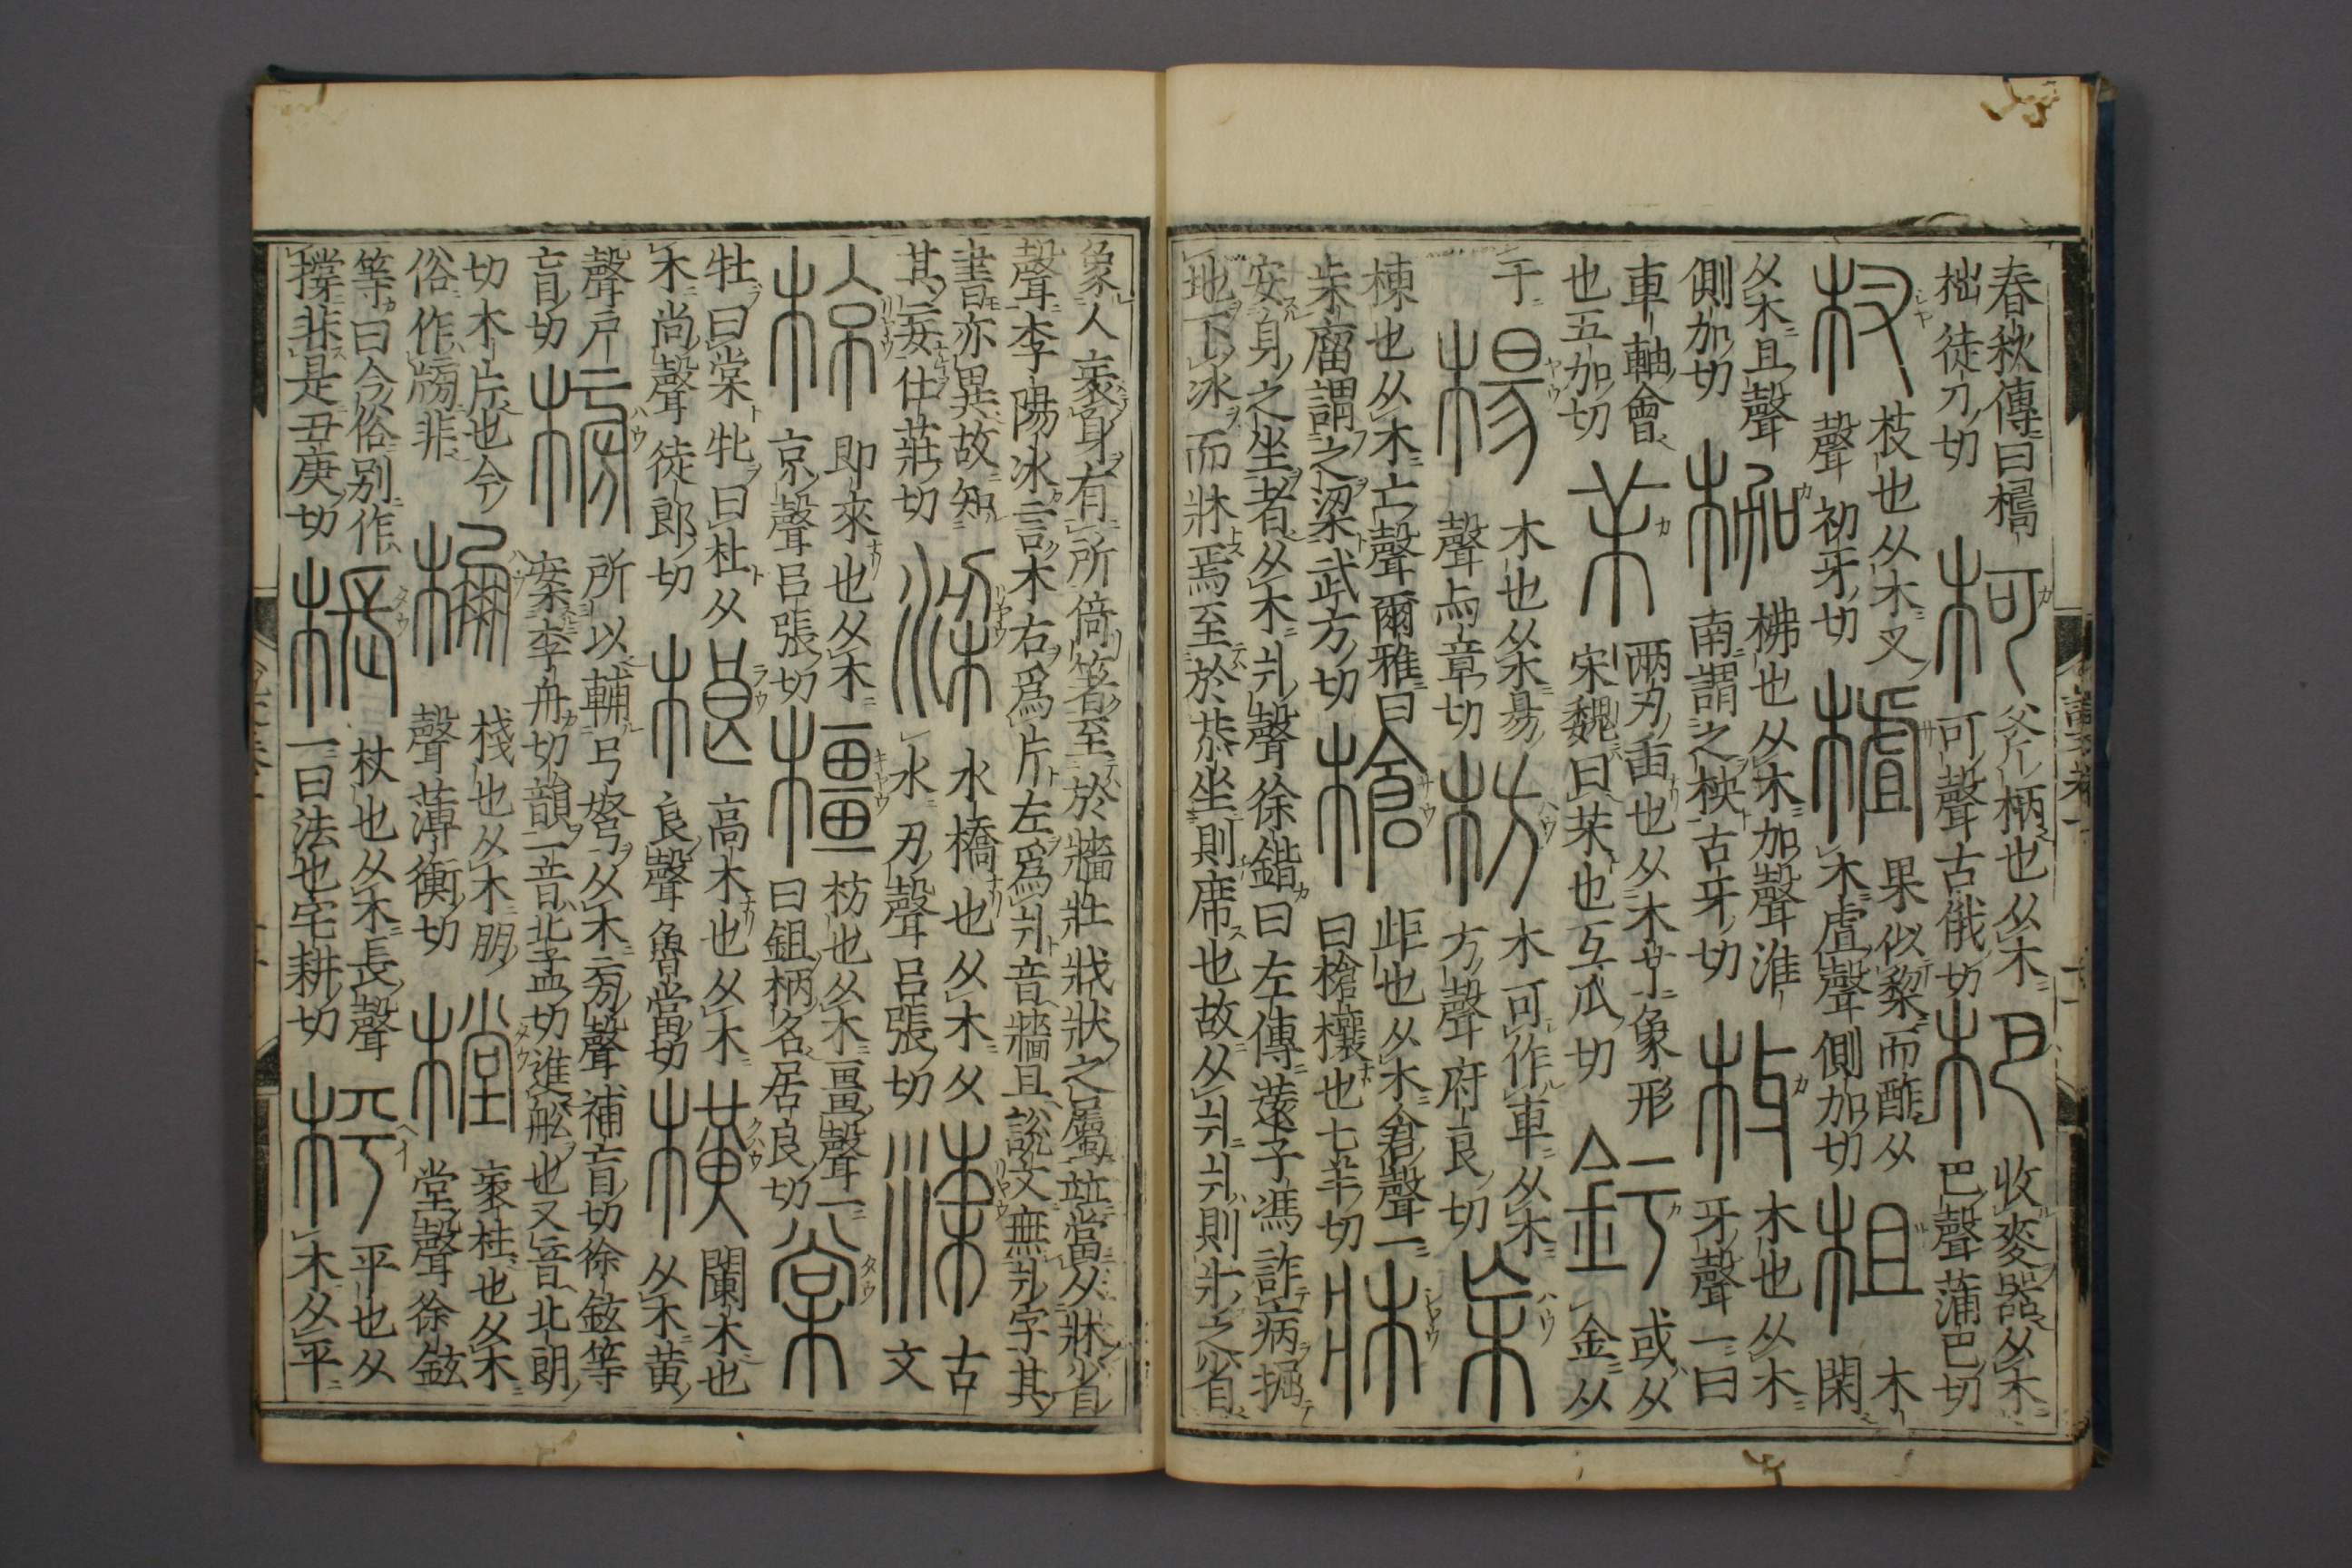 春秋傳曰檮
柮徒刀切
柯
斧柄也从木
可聲古俄切
杷
收麥器从木
巴聲蒲巴切
杈
枝也从木叉
聲初牙切
樝
果似棃而酢从
木虘聲側加切
柤
木
閑
从木且聲
側加切
枷
柫也从木加聲淮
南謂之柍古牙切
枒
木也从木
牙聲一曰
車軸會
也五加切
茉
两刃臿也从木象形
宋魏曰茉也互瓜切
釫
或从
金从
于
楊
木也从木昜
聲與章切
枋
木可作車从木
方聲府良切
㮃
棟也从木亡聲爾雅曰
㮃廇謂之梁武方切
槍
岠也从木倉聲一
曰槍欀也七羊切
牀
安身之坐者从木爿聲徐鍇曰左傳薳子馮詐病掘
地下冰而牀焉至於恭坐則席也故从爿爿則疒之省
象人衺身有所倚箸至於牆壯戕狀之屬並當从牀省
聲李陽冰言木右爲片左爲爿音牆且說文無爿字其
書亦異故知
其妄仕莊切
梁
水橋也从木从
水刅聲吕張切
古
文
椋
即來也从木
京聲吕張切
橿
枋也从木畺聲一
曰鉏柄名居良切
棠
牡曰棠牝曰杜从
木尚聲徒郎切
桹
高木也从木
良聲魯當切
横
闌木也
从木黄
聲戶
盲切
榜
所以輔弓弩从木旁聲補盲切徐鉉等
案李舟切韻一音北孟切進船也又音北朗
切木片也今
俗作牓非
棚
棧也从木朋
聲薄衡切
樘
衺柱也从木
堂聲徐鉉
等曰今俗別作
撐非是丑庚切
棖
杖也从木長聲
一曰法也宅耕切
枰
平也从
木从平